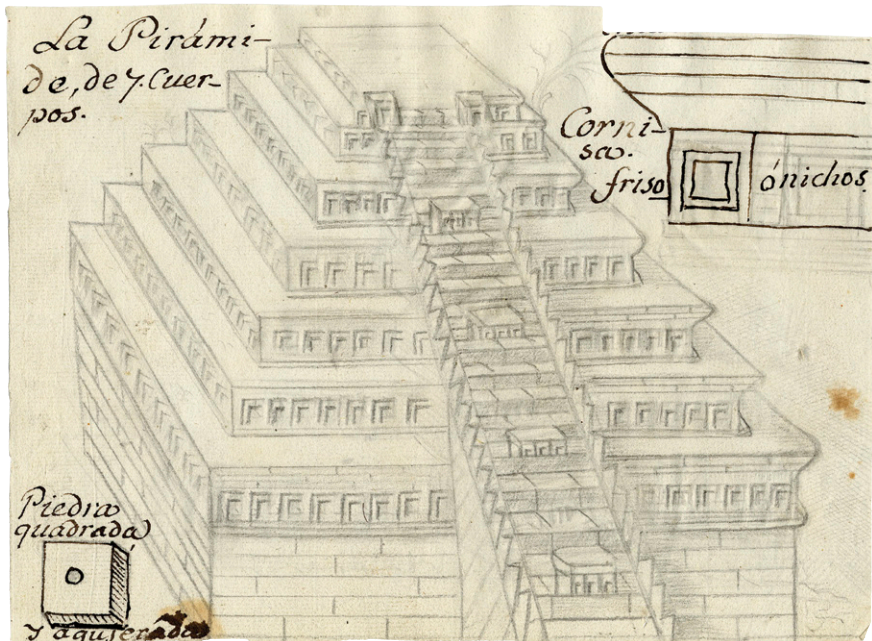 La Pirámi-
de, de 7. Cuer-
pos.
Corni-
sa.
friso
ónichos.
Piedra
quadrada
y agujerada